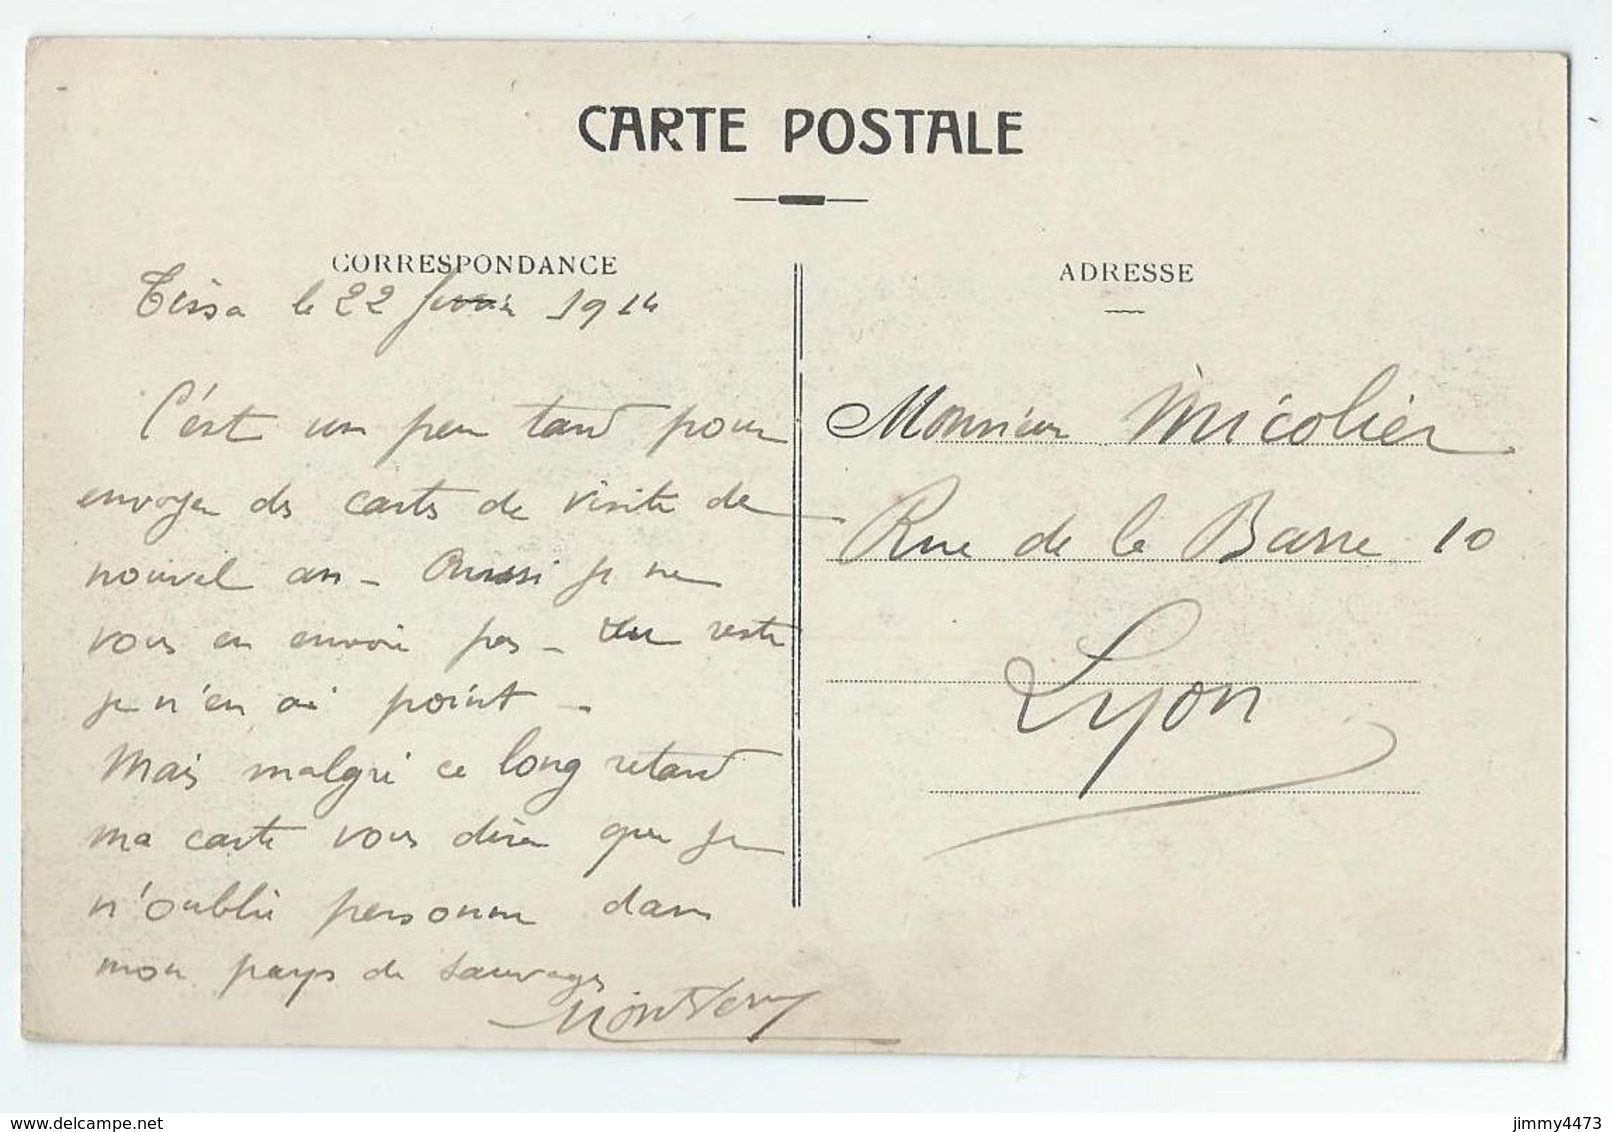 CARTE POSTALE
CORRESPONDANCE
ADRESSE
Tissa le 22 1914
C'est un peu tard pour
envoyer des cartes de visite de
nouvel an - Aussi je ne
vous en envoie pas - Du reste
je n'en ai point -
Mais malgré ce long retard
ma carte vous dira que je
n'oublie personne dans
mon pays de sauvages
Monsieur Micolier
Rue de la Barre 10
Lyon
www.delcampe.net
jimmy4473